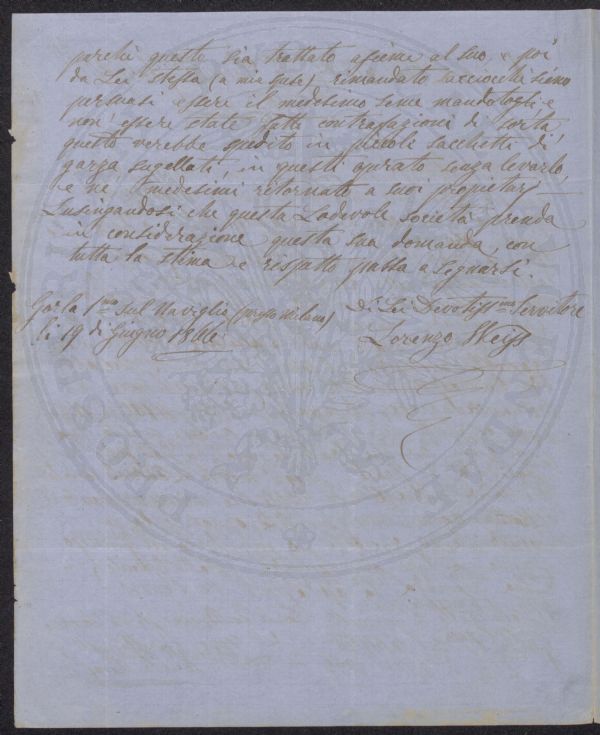 perchè questo sia trattato assieme al suo, e poi
da Lei stessa (a mie spese) rimandato sacciocchè sieno
persuasi essere il medesimo seme mandatogli e
non essere state fatte contrafazioni di sorta,
questo verebbe spedito in piccoli sacchetti di
garza sugellati, in questi operato senza levarlo,
e ne' medesimi ritornato a suoi proprietarj
Lusingandosi che questa Lodevole società prenda
in considerazione questa sua domanda, con
tutta la stima e rispetto passa a segnarsi.
Gorla 1mo sul Naviglio (presso Milano)
li 19 di Giugno 1866
Di Lei Devotissimo Servitore
Lorenzo